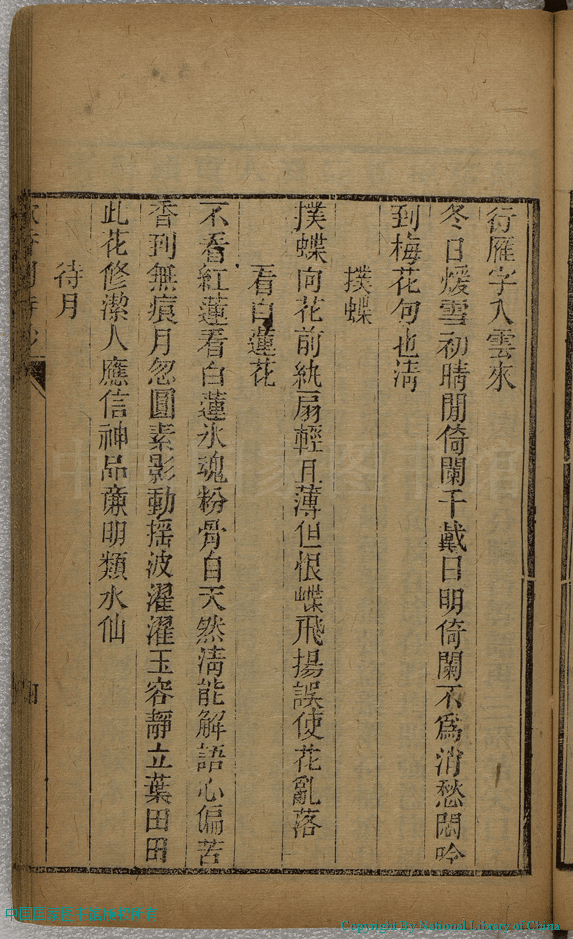 行雁字入雲來
冬日煖雪初晴閒倚闌干戴日明倚闌不爲消愁悶吟
到梅花句也淸
撲蝶
撲蝶向花前紈扇輕且薄但恨蝶飛揚誤使花亂落
看白蓮花
不看紅蓮看白蓮氷魂粉骨自天然淸能解語心偏苦
香到無痕月忽圓素影動搖波濯濯玉容靜立葉田田
此花修潔人應信神品兼明類水仙
待月
Copyright by National Library of China